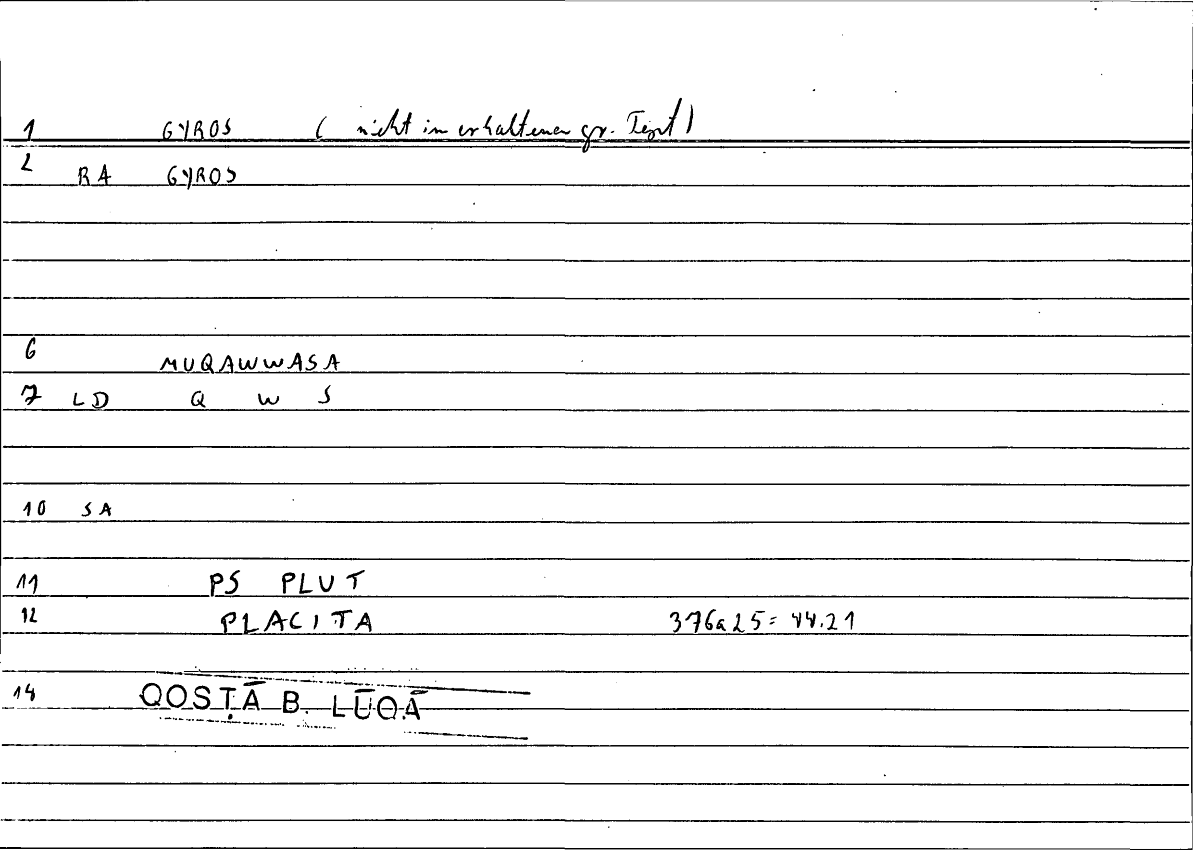 1 GYROS ( nicht im erhaltenen gr. Text )
2 RA GYROS
6 MUQAWWASA
7 LD Q W S
10 SA
11 PS PLUT
12 PLACITA 376a25 = 44.21
14 QOSṬĀ B. LŪQĀ